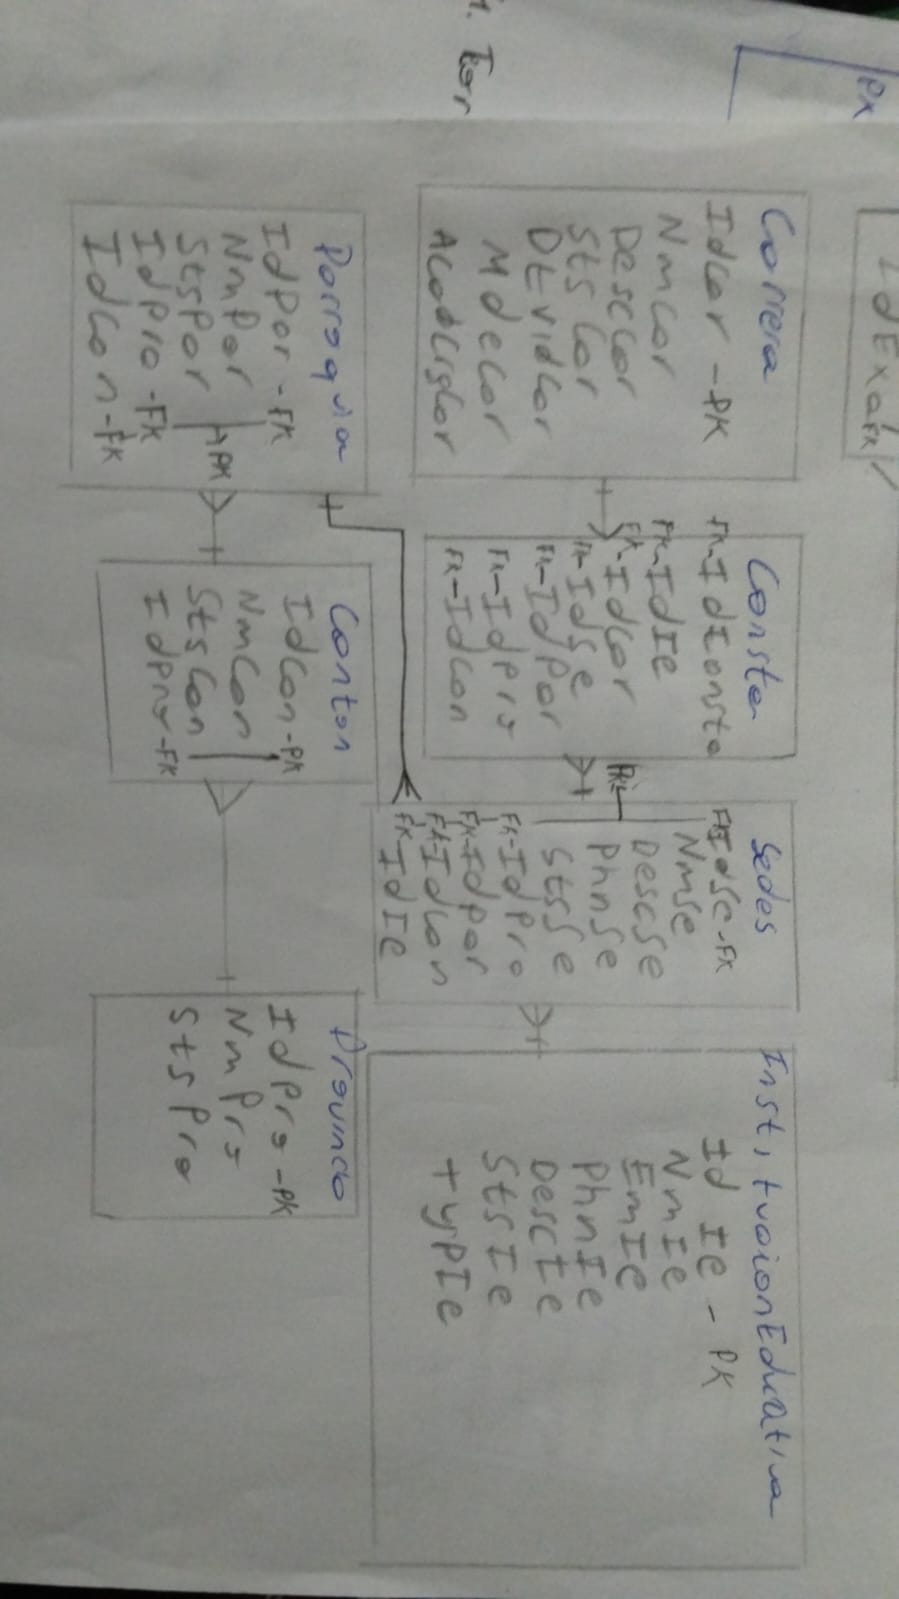 PK
IdExa FK
Carrera
IdCar - PK
NmCar
DescCar
StsCar
DtvidCar
MdeCar
AcadCigCar
Consta
FK-IdConsta
FK-IdIe
FK-IdCar
FK-IdSe
FK-IdPar
FK-IdPro
FK-IdCan
Sedes
FK IdSe-FK
NmSe
DescSe
PK
PhnSe
StsSe
FK-IdPro
FK-IdPar
FK-IdCan
FK IdIe
InstitucionEducativa
Id Ie - PK
NmIe
EmIe
PhnIe
DescIe
StsIe
typIe
Parroquia
IdPar - FK
NmPar
PK
StsPar
IdPro - FK
IdCan - FK
Canton
IdCan - PK
NmCan
StsCan
IdPro - FK
Provincia
IdPro - PK
NmPro
StsPro